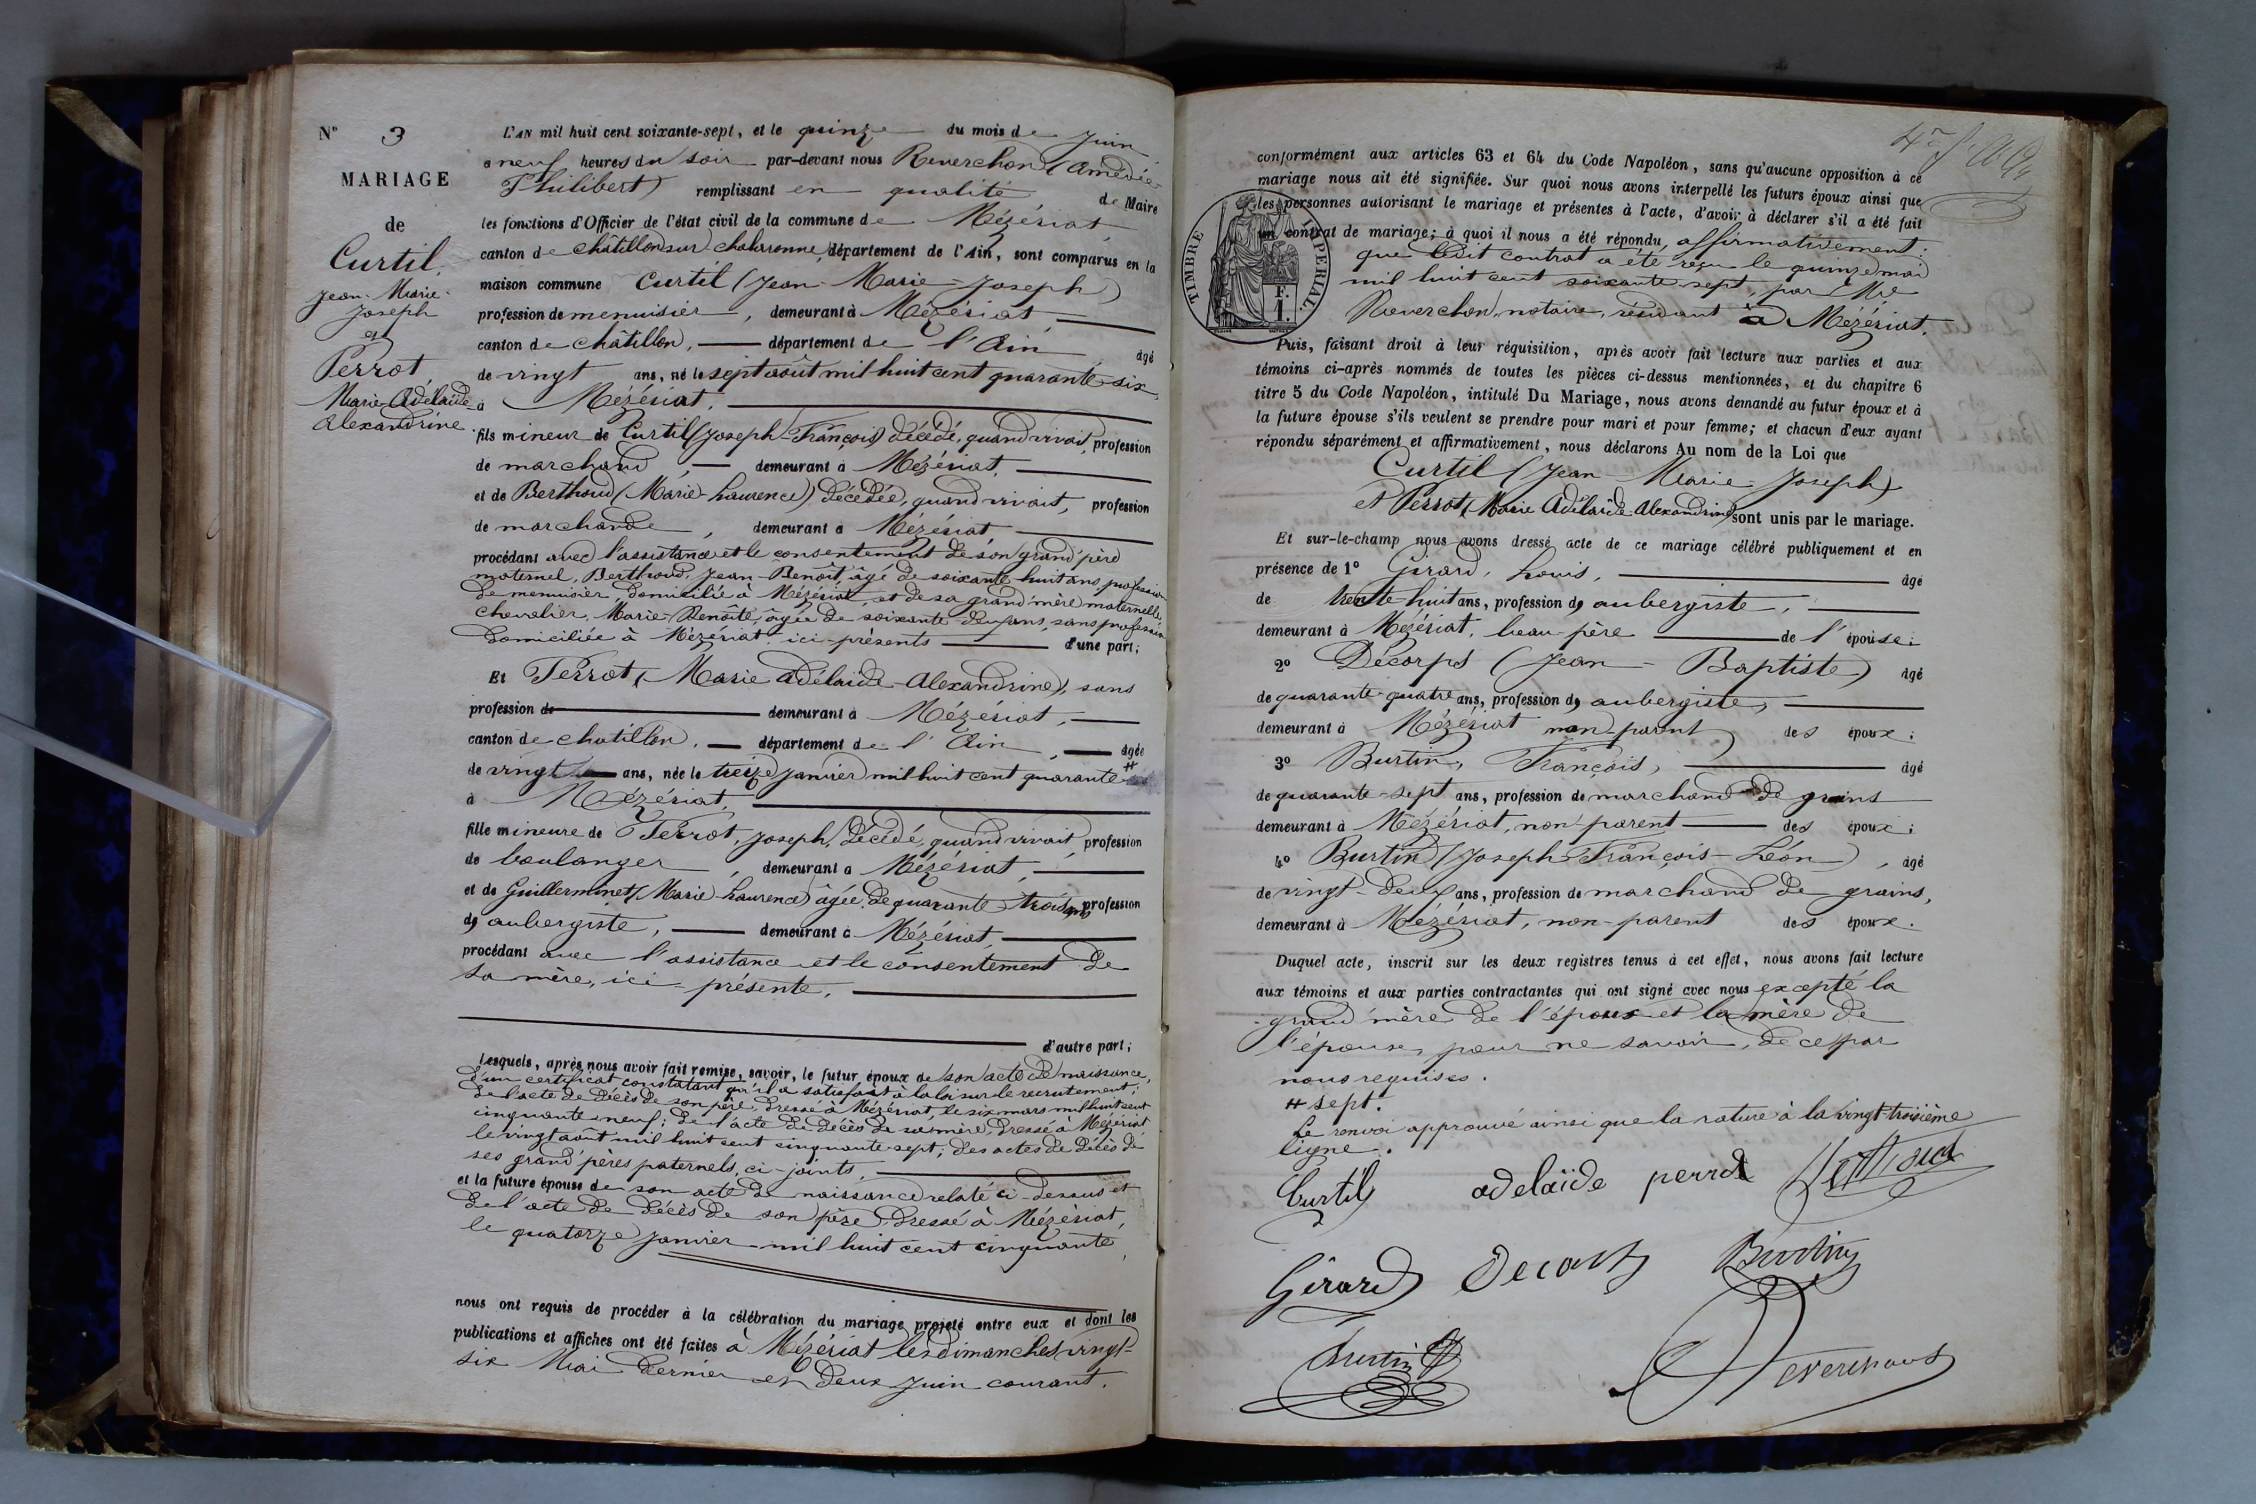 N° 3
MARIAGE
de
Curtil,
Jean-Marie-
Joseph
et
Perrot
Marie Adélaïde
Alexandrine.
L'AN mil huit cent soixante-sept, et le quinze du mois de juin
a neuf heures du soir par-devant nous Reverchon (Amédée-
Philibert) remplissant en qualité de Maire
les fonctions d'Officier de l'état civil de la commune de Mézériat
canton de Châtillon sur Chalaronne, département de l'Ain, sont comparus en la
maison commune Curtil (Jean-Marie-Joseph)
profession de menuisier, demeurant à Mézériat,
canton de Châtillon, département de l'Ain âgé
de vingt ans, né le sept août mil huit cent quarante-six
à Mézériat,
fils mineur de Curtil (Joseph-François) décédé, quand vivait, profession
de marchand, demeurant à Mézériat,
et de Berthoud (Marie-Laurence) décédée, quand vivait, profession
de marchande, demeurant à Mézériat
procédant avec l'assistance et le consentement de son grand'père
maternel, Berthoud, Jean-Benoît, âgé de soixante huit ans, profession
de menuisier, domicilié à Mézériat, et de sa grand'mère maternelle,
Chevalier, Marie-Benoîte, âgée de soixante-deux ans, sans profession
domiciliée à Mézériat, ici-présents d'une part;
Et Perrot, (Marie Adélaïde-Alexandrine), sans
profession de demeurant à Mézériat,
canton de Chatillon, département de l'Ain, âgée
de vingt ans, née le treize janvier mil huit cent quarante #
à Mézériat,
fille mineure de Perrot, Joseph, décédé, quand vivait, profession
de boulanger, demeurant à Mézériat,
et de Guillerminet (Marie-Laurence) âgée de quarante-trois ans profession
d'aubergiste, demeurant à Mézériat,
procédant avec l'assistance et le consentement de
sa mère, ici-présente,
d'autre part;
Lesquels, après nous avoir fait remise, savoir, le futur époux de son acte de naissance,
d'un certificat constatant qu'il a satisfait à la loi sur le recrutement;
de l'acte de décès de son père, dressé à Mézériat, le six mars mil huit cent
cinquante-neuf; de l'acte de décès de sa mère, dressé à Mézériat
le vingt août mil huit cent cinquante-sept; des actes de décès de
ses grand'pères paternels, ci-joints,
et la future épouse de son acte de naissance relaté ci-dessus et
de l'acte de décès de son père, dressé à Mézériat,
le quatorze janvier mil huit cent cinquante,
nous ont requis de procéder à la célébration du mariage projeté entre eux et dont les
publications et affiches ont été faites à Mézériat les dimanches vingt-
six Mai dernier et deux juin courant.
conformément aux articles 63 et 64 du Code Napoléon, sans qu'aucune opposition à ce
mariage nous ait été signifiée. Sur quoi nous avons interpellé les futurs époux ainsi que
les personnes autorisant le mariage et présentes à l'acte, d'avoir à déclarer s'il a été fait
un contrat de mariage; à quoi il nous a été répondu, affirmativement:
que ledit contrat a été reçu le quinze mai
mil huit cent soixante-sept, par Me
Reverchon, notaire, résidant à Mézériat.
TIMBRE IMPERIAL.
1 F.
Puis, faisant droit à leur réquisition, après avoir fait lecture aux parties et aux
témoins ci-après nommés de toutes les pièces ci-dessus mentionnées, et du chapitre 6
titre 5 du Code Napoléon, intitulé Du Mariage, nous avons demandé au futur époux et à
la future épouse s'ils veulent se prendre pour mari et pour femme; et chacun d'eux ayant
répondu séparément et affirmativement, nous déclarons Au nom de la Loi que
Curtil (Jean-Marie-Joseph)
et Perrot (Marie Adélaïde-Alexandrine) sont unis par le mariage.
Et sur-le-champ nous avons dressé acte de ce mariage célébré publiquement et en
présence de 1° Girard, Louis, âgé
de trente huit ans, profession d'aubergiste,
demeurant à Mézériat, beau-père de l'épouse;
2° Décorps (Jean-Baptiste) âgé
de quarante-quatre ans, profession d'aubergiste,
demeurant à Mézériat non-parent des époux;
3° Burtin, François, âgé
de quarante-sept ans, profession de marchand de grains
demeurant à Mézériat, non-parent des époux;
4° Burtin (Joseph-François-Léon), âgé
de vingt-deux ans, profession de marchand de grains,
demeurant à Mézériat, non-parent des époux.
Duquel acte, inscrit sur les deux registres tenus à cet effet, nous avons fait lecture
aux témoins et aux parties contractantes qui ont signé avec nous excepté la
grand'mère de l'époux et la mère de
l'épouse, pour ne savoir, de ce par
nous requises.
# sept.
Le renvoi approuvé ainsi que la rature à la vingt-troisième
ligne.
Curtil adelaïde perrot Berthoud
Girard Decorps Burtin
Burtin Reverchon